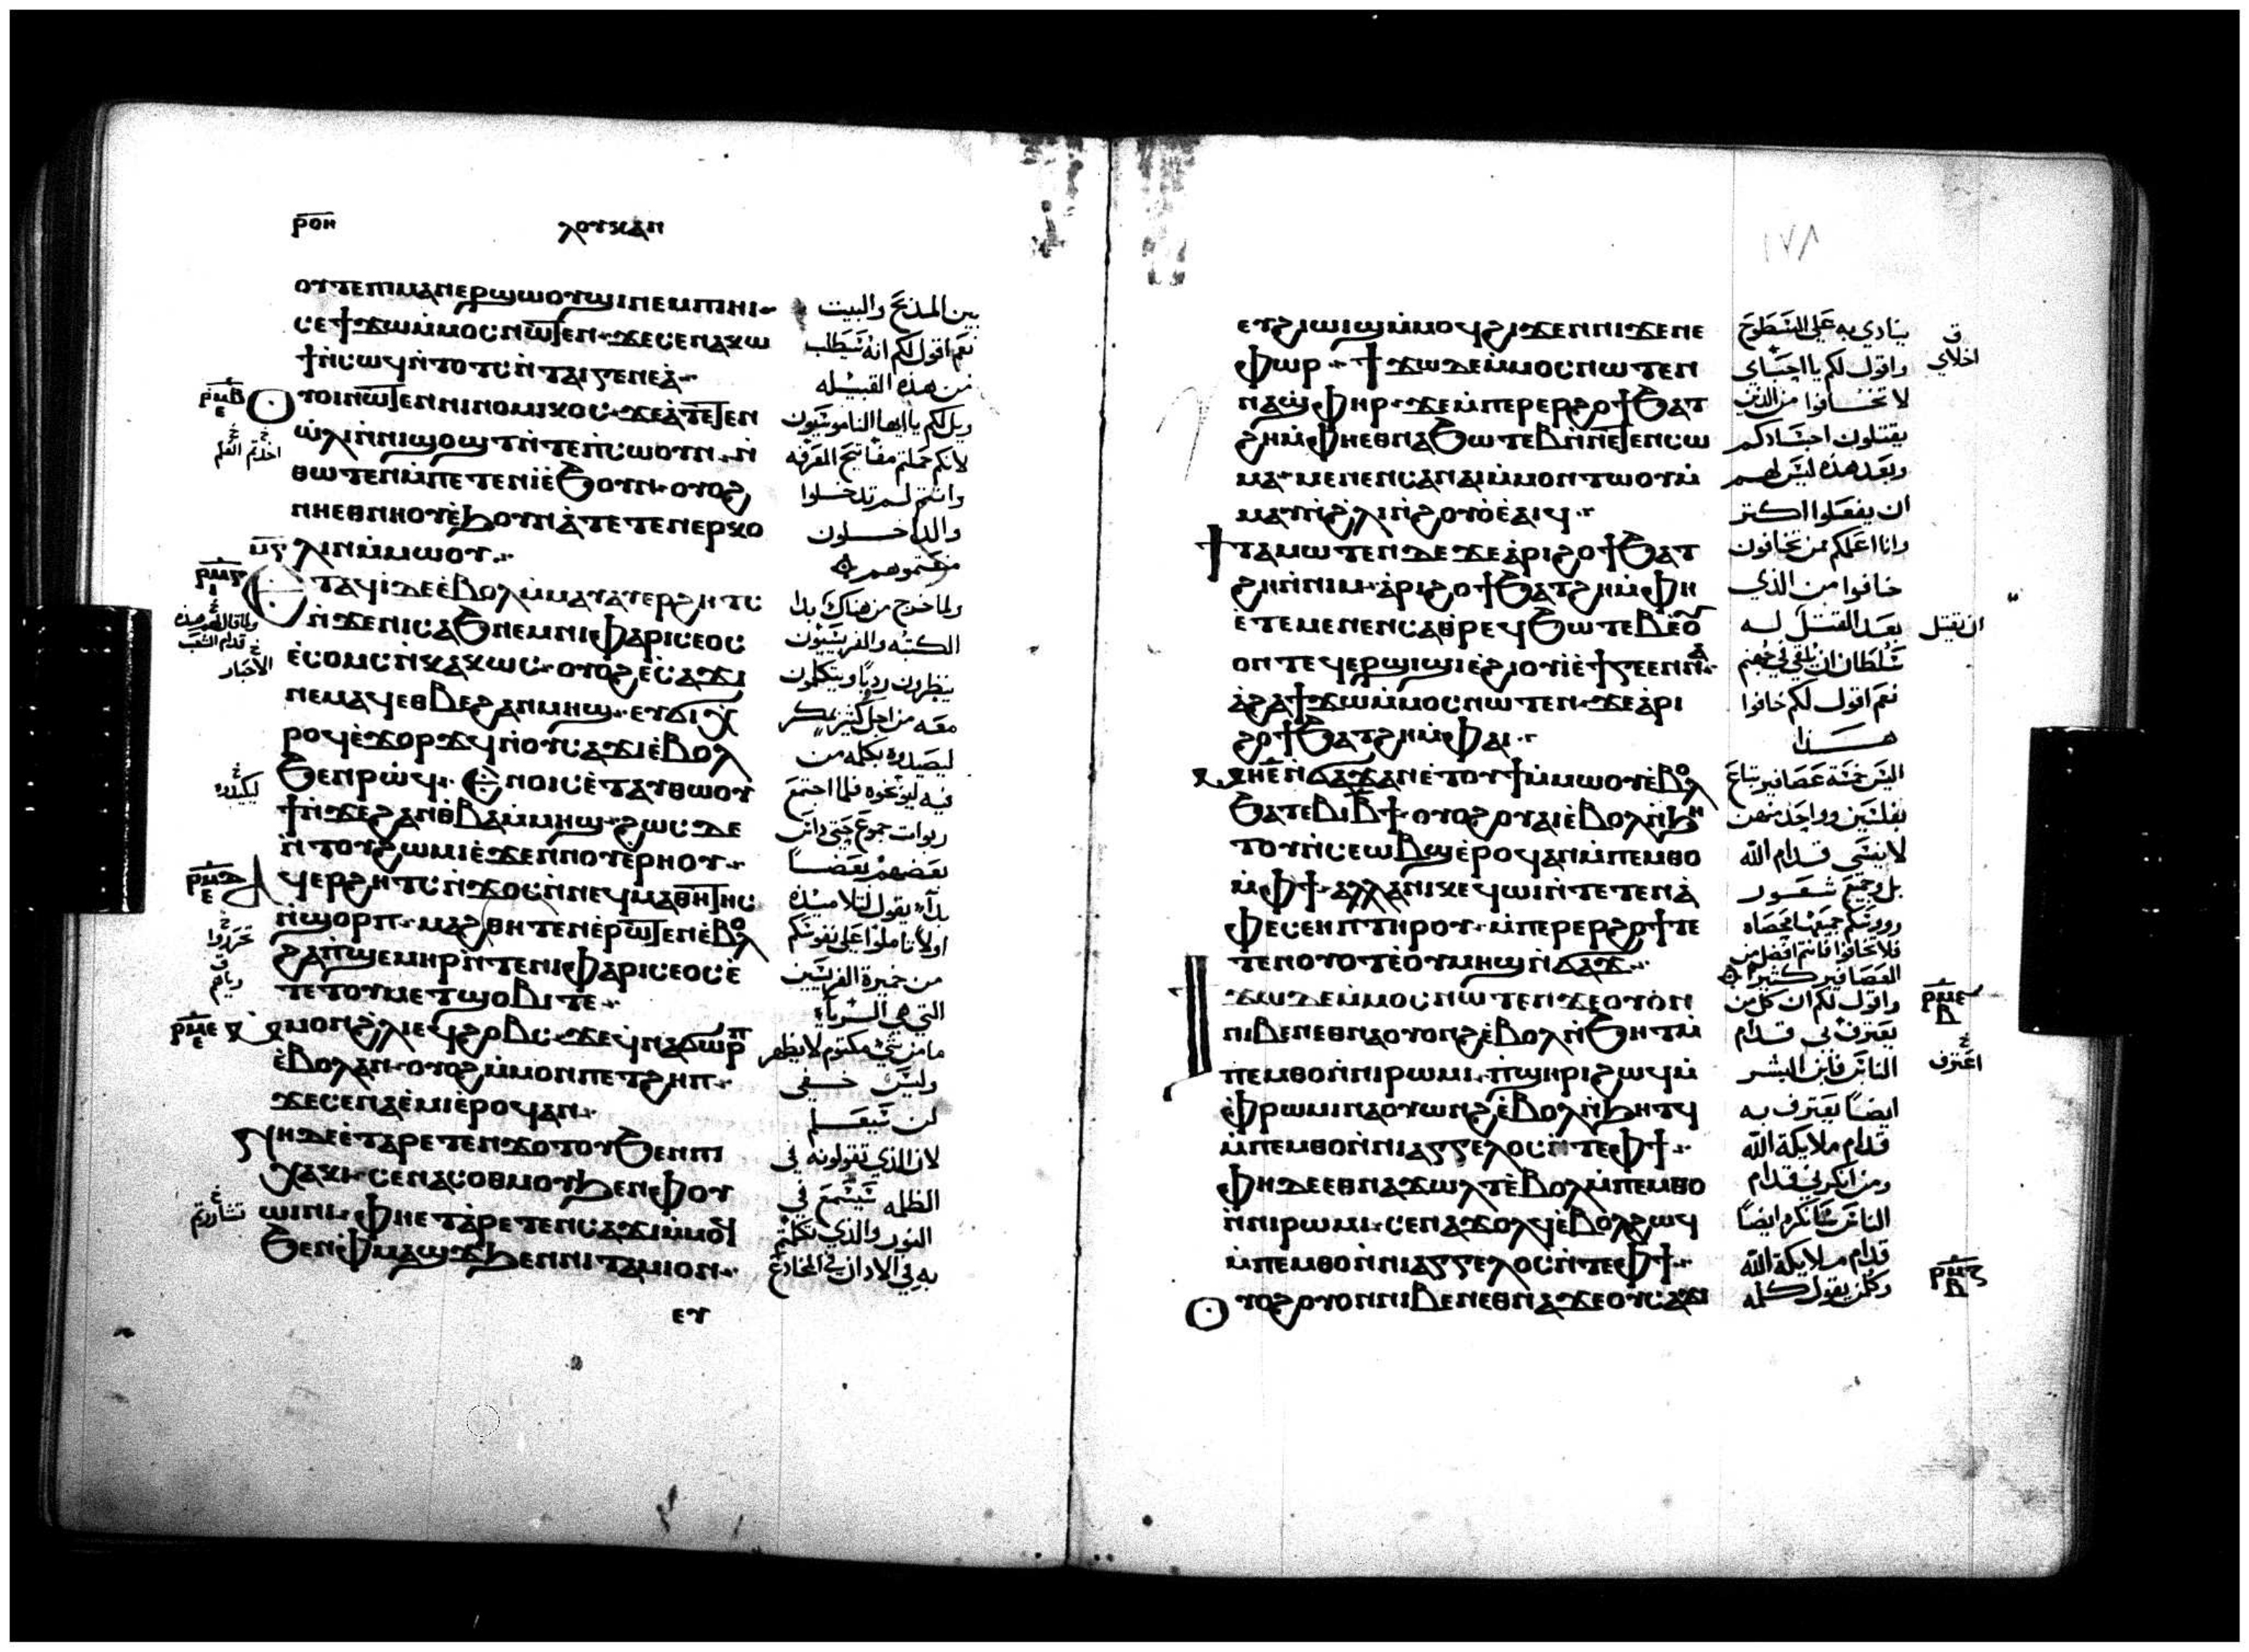 ⲣⲟⲏ ⲗⲟⲩⲕⲁⲛ
ⲟⲩⲧⲉⲡⲓⲙⲁⲛⲉⲣϣⲱⲟⲩϣⲓⲛⲉⲙⲡⲓⲏⲓ
ⲥⲉϯϫⲱⲙ̀ⲙⲟⲥⲛⲱⲧⲉⲛ ϫⲉⲥⲉⲛⲁⲕⲱ
ϯⲛ̀ⲥⲱϥⲛ̀ⲧⲟⲧⲥⲛ̀ⲧⲁⲓⲅⲉⲛⲉⲁ̀
ⲟⲩⲟⲓⲛⲱⲧⲉⲛⲛⲓⲛⲟⲙⲓⲕⲟⲥ ϫⲉⲁ̀ⲧⲉⲧⲉⲛ
ⲱ̀ⲗⲓⲛ̀ⲛⲓϣⲟϣⲧⲛ̀ⲧⲉⲡ̀ⲥⲱⲟⲩⲛ ⲛ̀
ⲑⲱⲧⲉⲛⲙ̀ⲡⲉⲧⲉⲛⲓ̀ⲉ̀ϧⲟⲩⲛ ⲟⲩⲟϩ
ⲛⲏⲉⲑⲛⲏⲟⲩⲉ̀ϧⲟⲩⲛⲁ̀ⲧⲉⲧⲉⲛⲉⲣⲕⲱ
ⲗⲓⲛⲙ̀ⲙⲱⲟⲩ
ⲉⲧⲁϥⲓ̀ⲇⲉⲉ̀ⲃⲟⲗⲙ̀ⲙⲁⲩⲁⲩⲉⲣϩⲏⲧⲥ
ⲛ̀ϫⲉⲛⲓⲥⲁϧⲛⲉⲙⲛⲓⲫⲁⲣⲓⲥⲉⲟⲥ
ⲉ̀ⲥⲟⲙⲥⲛ̀ⲭⲁⲕⲱⲥ ⲟⲩⲟϩⲉ̀ⲥⲁϫⲓ
ⲛⲉⲙⲁϥⲉⲑⲃⲉϩⲁⲛⲙⲏϣ ⲉⲩϭⲓⲭ̀
ⲣⲟϥⲉ̀ϫⲟⲣϫϥⲛ̀ⲟⲩⲥⲁϫⲓⲉ̀ⲃⲟⲗ
ϧⲉⲛⲣⲱϥ ⲉⲛⲟⲓⲥⲉ̀ⲧⲁⲩⲑⲱⲟⲩ
ϯⲛ̀ϫⲉϩⲁⲛⲑ̀ⲃⲁⲙ̀ⲙⲏϣ ϩⲱⲥⲇⲉ
ⲛ̀ⲧⲟⲩϩⲱⲙⲓⲉ̀ϫⲉⲛⲛⲟⲩⲉ̀ⲣⲏⲟⲩ
ⲁϥⲉⲣϩⲏⲧⲥⲛ̀ϫⲟⲥⲛ̀ⲛⲉϥⲙⲁⲑⲏⲧⲏⲥ
ⲛ̀ϣⲟⲣⲡ ⲙⲁϩⲑⲏⲧⲉⲛⲉ̀ⲣⲱⲧⲉⲛⲉ̀ⲃⲟⲗ
ϩⲁⲡ̀ϣⲉⲙⲏⲣⲛ̀ⲧⲉⲛⲓⲫⲁⲣⲓⲥⲉⲟⲥⲉ̀
ⲧⲉⲧⲟⲩⲙⲉⲧϣⲟⲃⲓⲧⲉ
ⲙ̀ⲙⲟⲛϩ̀ⲗⲓⲉϥϩⲟⲃⲥ ϫⲉϥ̀ⲛⲁϭⲱⲣⲡ
ⲉ̀ⲃⲟⲗⲁⲛ ⲟⲩⲟϩⲙ̀ⲙⲟⲛⲡⲉⲧϩⲏⲡ
ϫⲉⲥⲉⲛⲁⲉ̀ⲙⲓⲉ̀ⲣⲟϥⲁⲛ
ⲛⲏⲇⲉⲉ̀ⲧⲁⲣⲉⲧⲉⲛϫⲟⲧⲟⲩϧⲉⲛⲡⲓ
ⲭⲁⲕⲓ ⲥⲉⲛⲁⲥⲟⲑⲙⲟⲩϧⲉⲛⲫⲟⲩ
ⲱⲓⲛⲓ ⲫⲏⲉⲧⲁⲣⲉⲧⲉⲛⲥⲁϫⲓⲙ̀ⲙⲟϥ
ϧⲉⲛⲫ̀ⲙⲁϣϫϧⲉⲛⲛⲓⲧⲁⲙⲓⲟⲛ
ⲉⲩ
بين المذبح والبيت
نعم اقول لكم انه سيطلب
من هذه القبيله
ويل لكم يا ايها الناموسيون
لانكم حملتم مفاتيح المعرفه
وانتم لم تدخلوا
والداخلون
منعتموهم
ولما خرج من هناك بدا
الكتبه والفريسيون
ينظرون رديا ويتكلمون
معه من اجل كثير بمكر
ليصيدوه بكلمه من
فيه ليوقعوه فلما اجتمع
ربوات جموع حتى داس
بعضهم بعضا
بدا يقول لتلاميذه
اولا تاملوا على نفوسكم
من خميرة الفريسيين
التي هي الرياء
ما من شي مكتوم لا يظهر
وليس خفي
لن سيعلم
لان الذي تقولونه في
الظلمه سيسمع في
النور والذي تكلمتم
به في الاذان في المخادع
١٧٨
ⲉⲩϩⲓⲱⲓϣⲙ̀ⲙⲟϥϩⲓϫⲉⲛⲛⲓϫⲉⲛⲉ
ⲫⲱⲣ ϯϫⲱⲇⲉⲙ̀ⲙⲟⲥⲛⲱⲧⲉⲛ
ⲛⲁϣ̀ⲫⲏⲣ ϫⲉⲙ̀ⲡⲉⲣⲉⲣϩⲟϯϧⲁⲧ
ϩⲏⲙ̀ⲫⲏⲉⲑⲛⲁϧⲱⲧⲉⲃⲛ̀ⲛⲉⲧⲉⲛⲥⲱ
ⲙⲁ ⲙⲉⲛⲉⲛⲥⲁⲛⲁⲓⲙ̀ⲙⲟⲛⲧⲱⲟⲩⲙ̀
ⲙⲁⲛ̀ϩ̀ⲗⲓⲛ̀ϩⲟⲩⲟ̀ⲉ̀ⲁⲓϥ
ϯⲧⲁⲙⲱⲧⲉⲛⲇⲉϫⲉⲁ̀ⲣⲓϩⲟϯϧⲁⲧ
ϩⲏⲛ̀ⲛⲓⲙ ⲁ̀ⲣⲓϩⲟϯϧⲁⲧϩⲏⲙ̀ⲫⲏ
ⲉ̀ⲧⲉⲙⲉⲛⲉⲛⲥⲁⲑ̀ⲣⲉϥϧⲱⲧⲉⲃⲉ̀ⲟⲩ
ⲟⲛⲧⲉϥⲉⲣϣⲓϣⲓⲉ̀ϩⲓⲟⲩⲓ̀ⲉ̀ϯⲅⲉⲉⲛⲛⲁ
ⲁ̀ϩⲁϯϫⲱⲙ̀ⲙⲟⲥⲛⲱⲧⲉⲛ ϫⲉⲁ̀ⲣⲓ
ϩⲟϯϧⲁⲧϩⲏⲙ̀ⲫⲁⲓ
ⲙⲏⲉ̄ⲛ̀ϭⲁϫⲁⲛⲉ̀ⲧⲟⲩϯⲙ̀ⲙⲱⲟⲩⲉ̀ⲃⲟⲗ
ϧⲁⲧⲉⲃⲓⲃ̄ϯ ⲟⲩⲟϩⲟⲩⲁⲓⲉ̀ⲃⲟⲗⲛ̀ϧⲏ
ⲧⲟⲩⲛ̀ⲥⲉⲱⲃϣⲉ̀ⲣⲟϥⲁⲛⲙ̀ⲡⲉⲙⲑⲟ
ⲙ̀ⲫϯ ⲁⲗⲗⲁⲛⲓⲕⲉϥⲱⲓⲛ̀ⲧⲉⲧⲉⲛⲁ̀
ⲫⲉⲥⲉⲏⲡⲧⲏⲣⲟⲩ ⲙ̀ⲡⲉⲣⲉⲣϩⲟϯⲧⲉ
ⲧⲉⲛⲟⲩⲟⲧⲉ̀ⲟⲩⲙⲏϣⲛ̀ϭⲁϫ
ϯϫⲱⲇⲉⲙ̀ⲙⲟⲥⲛⲱⲧⲉⲛϫⲉⲟⲩⲟ̀ⲛ
ⲛⲓⲃⲉⲛⲉⲑⲛⲁⲟⲩⲟⲛϩⲉ̀ⲃⲟⲗⲛ̀ϧⲏⲧⲙ̀
ⲡⲉⲙⲑⲟⲛ̀ⲛⲓⲣⲱⲙⲓ ⲡ̀ϣⲏⲣⲓϩⲱϥⲙ̀
ⲫ̀ⲣⲱⲙⲓⲛⲁⲟⲩⲱⲛϩⲉ̀ⲃⲟⲗⲛ̀ϧⲏⲧϥ
ⲙ̀ⲡⲉⲙⲑⲟⲛ̀ⲛⲓⲁⲅⲅⲉⲗⲟⲥⲛ̀ⲧⲉⲫϯ
ⲫⲏⲇⲉⲉⲑⲛⲁϫⲱⲗⲧⲉ̀ⲃⲟⲗⲙ̀ⲡⲉⲙⲑⲟ
ⲛ̀ⲛⲓⲣⲱⲙⲓ ⲥⲉⲛⲁϫⲟⲗϥⲉ̀ⲃⲟⲗϩⲱϥ
ⲙ̀ⲡⲉⲙⲑⲟⲛ̀ⲛⲓⲁⲅⲅⲉⲗⲟⲥⲛ̀ⲧⲉⲫϯ
ⲟⲩⲟϩⲟⲩⲟⲛⲛⲓⲃⲉⲛⲉⲑⲛⲁϫⲉⲟⲩⲥⲁϫⲓ
ينادي به على السطوح
واقول لكم يا احباي
لا تخافوا من الذين
يقتلون اجسادكم
وبعد هذه ليس لهم
ان يفعلوا اكثر
وانا اعلمكم ممن تخافون
خافوا من الذي
بعد القتل له
سلطان ان يلقي في جهنم
نعم اقول لكم خافوا
هذا
اليس خمسة عصافير تباع
بفلسين وواحد منهن
لا ينسى قدام الله
بل وجميع شعور
رووسكم جميعها محصاه
فلا تخافوا فانتم افضل من
العصافير كثير
واقول لكم ان كل من
يعترف بي قدام
الناس فابن البشر
ايضا يعترف به
قدام ملايكة الله
ومن انكرني قدام
الناس سانكره ايضا
قدام ملايكة الله
وكل من يقول كلمه